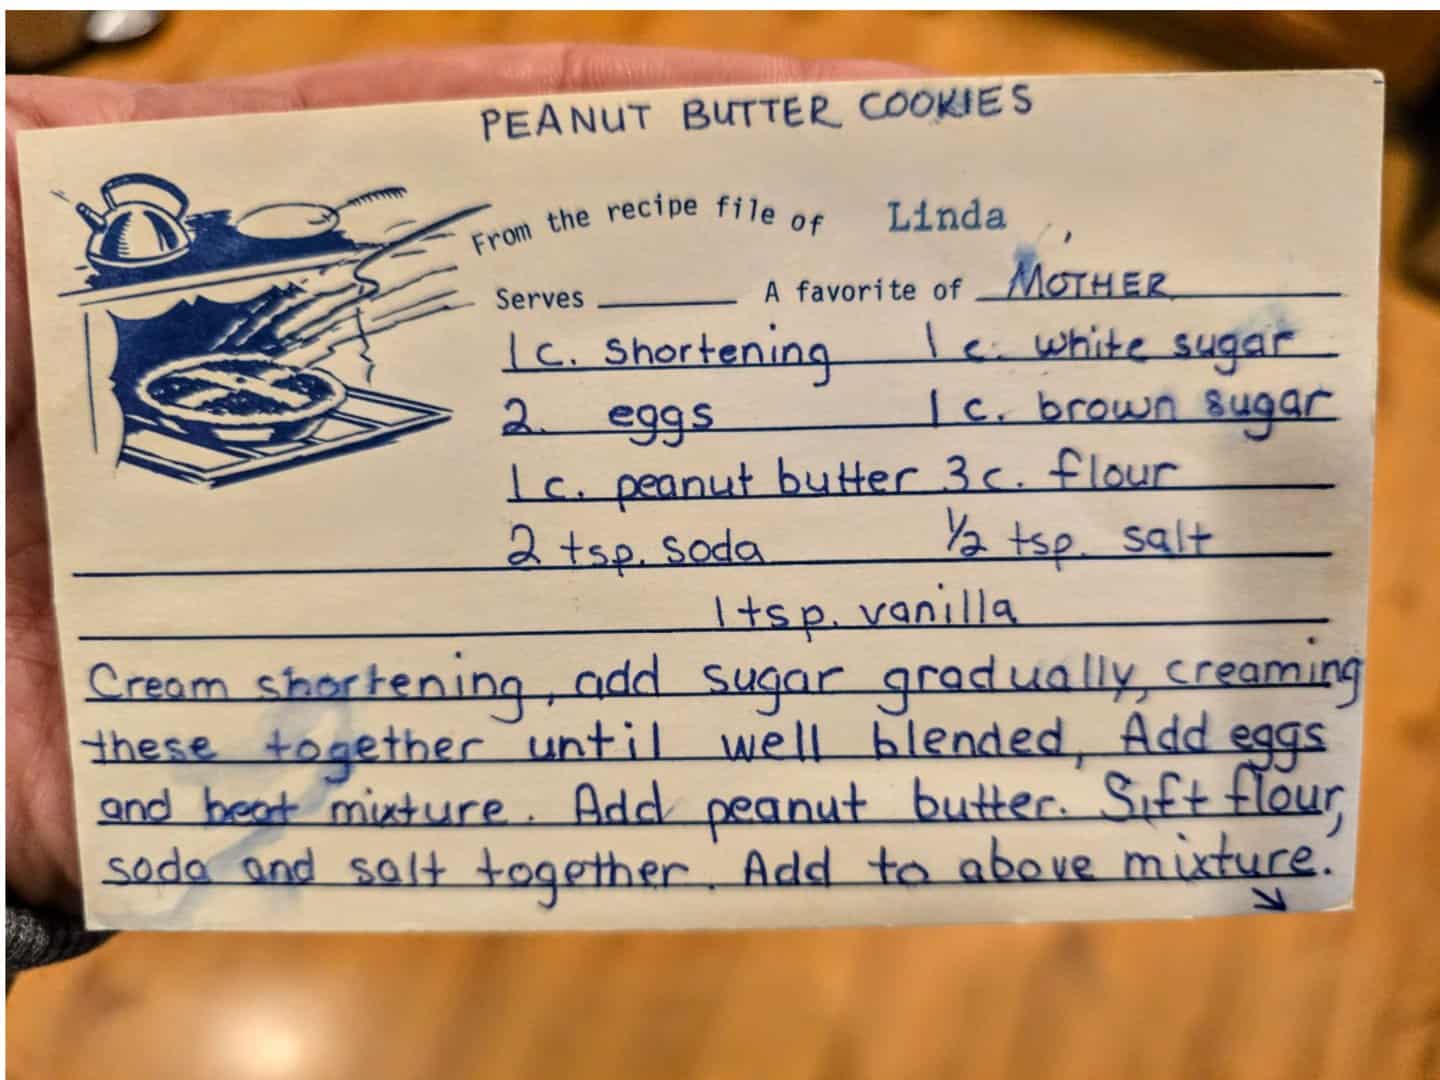 PEANUT BUTTER COOKIES
From the recipe file of Linda
Serves A favorite of MOTHER
1 c. shortening 1 c. white sugar
2 eggs 1 c. brown sugar
1 c. peanut butter 3 c. flour
2 tsp. soda ½ tsp. salt
1 tsp. vanilla
Cream shortening, add sugar gradually, creaming
these together until well blended, Add eggs
and beat mixture. Add peanut butter. Sift flour,
soda and salt together. Add to above mixture.